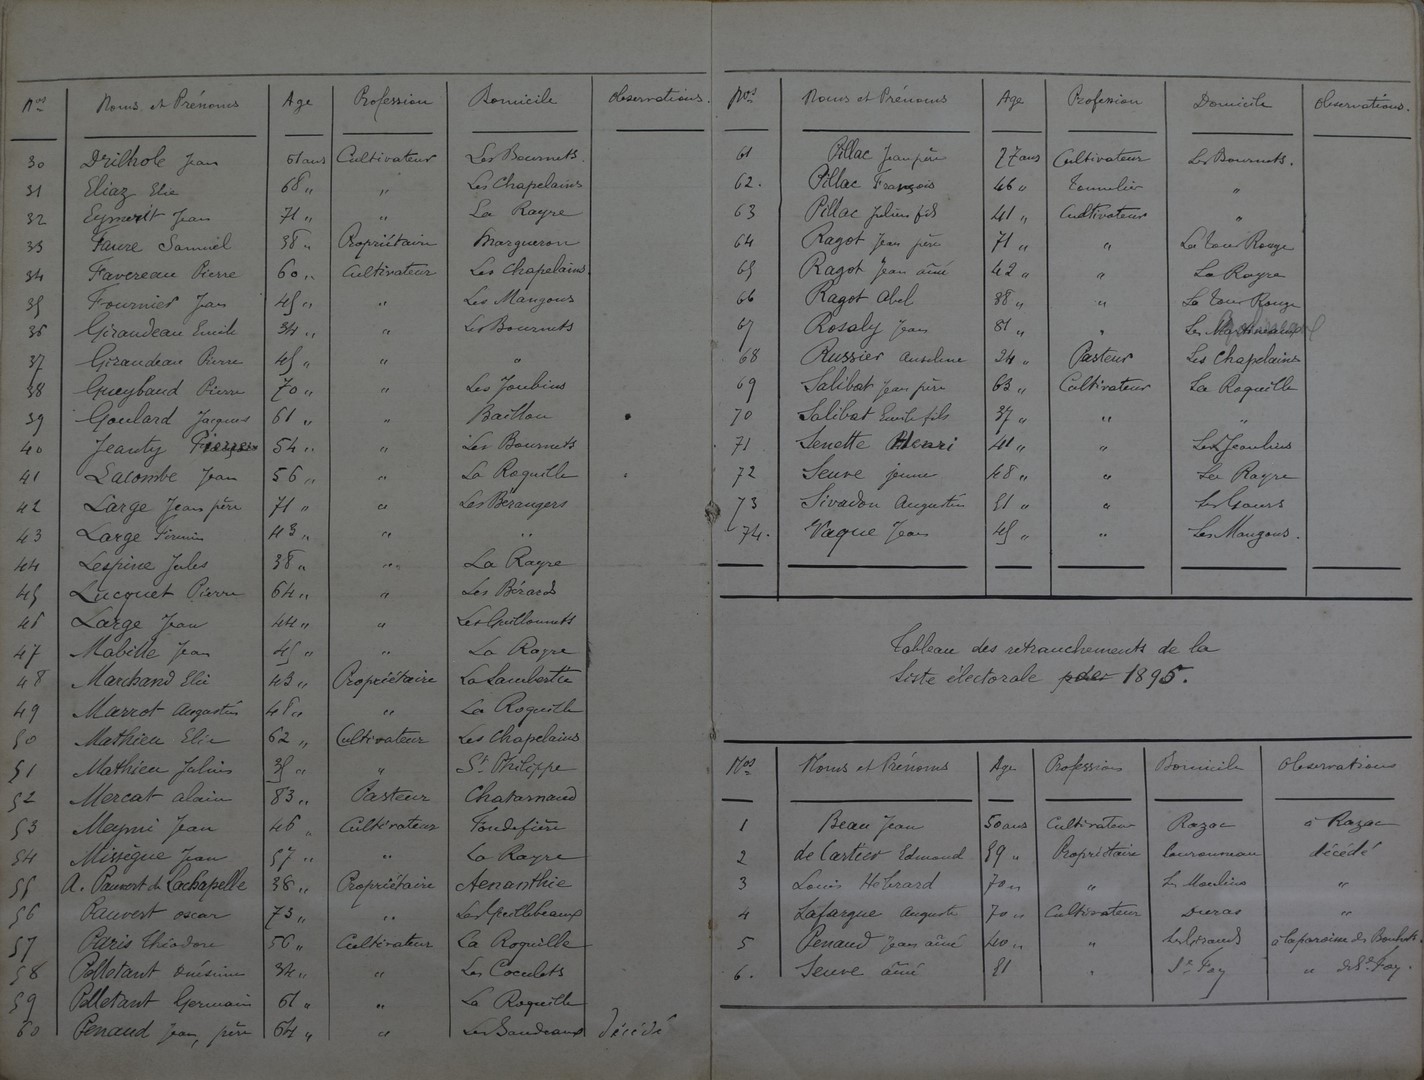 Nos Noms et Prénoms Age Profession Domicile Observations.
30 Drilhole Jean 61 ans Cultivateur Les Bournets.
31 Eliaz Elie 68 " " Les Chapelains
32 Eymerit Jean 71 " " La Rayre
33 Faure Samuel 38 " Propriétaire Margueron
34 Favereau Pierre 60 " Cultivateur Les Chapelains.
35 Fournier Jean 45 " " Les Mangons
36 Giraudeau Emile 34 " " Les Bournets
37 Giraudeau Pierre 45 " " "
38 Gueybaud Pierre 70 " " Les Joubins
39 Goulard Jacques 61 " " Baillou
40 Jeanty 54 " " Les Bournets
41 Lacombe Jean 56 " " La Roquille
42 Large Jean père 71 " " Les Bérangers
43 Large Firmin 43 " " "
44 Lespine Jules 38 " " La Rayre
45 Lucquet Pierre 64 " " Les Bérards
46 Large Jean 44 " " Les Guillonnets
47 Mabille Jean 45 " " La Rayre
48 Marchand Elie 43 " Propriétaire La Lambertie
49 Marrot Augustin 48 " " La Roquille
50 Mathieu Elie 62 " Cultivateur Les Chapelains
51 Mathieu Julien 35 " " St Philippe
52 Mercat alain 83 " Pasteur
53 Meymi Jean 46 " Cultivateur Fondefière
54 Missègue Jean 57 " " La Rayre
55 A. Pauvert de Lachapelle 38 " Propriétaire Aenanthie
56 Pauvert oscar 73 " "
57 Paris Théodore 56 " Cultivateur La Roquille
58 Pelletant onésime 34 " " Les Coculets
59 Pelletant Germain 61 " " La Roquille
60 Penaud Jean, père 64 " " Les Gaudeaux décédé
Nos Noms et Prénoms Age Profession Domicile Observations.
61 Pillac Jean père 77 ans Cultivateur Les Bournets.
62. Pillac François 46 " Tonnelier "
63 Pillac Julien fils 41 " Cultivateur "
64 Ragot Jean père 71 " " La Tour Rouge
65 Ragot Jean aîné 42 " " La Rayre
66 Ragot Abel 38 " " La Tour Rouge
67 Rosaly Jean 81 " " Les
68 Russier Anselme 24 " Pasteur Les Chapelains
69 Salibat Jean père 63 " Cultivateur La Roquille
70 Salibat Emile fils 37 " " "
71 Senette Henri 41 " " Les Jeaulins
72 Seuve jeune 48 " " La Rayre
73 Sivadon Augustin 51 " " Les Gours
74. Vaque Jean 45 " " Les Mangons.
Tableau des retranchements de la
Liste électorale 1895.
Nos Noms et Prénoms Age Profession Domicile Observations
1 Beau Jean 50 ans Cultivateur Razac à Razac
2 de Cartier Edmond 59 " Propriétaire décédé
3 Louis Hébrard 70 " " Les Moulins "
4 Lafargue Auguste 70 " Cultivateur Duras "
5 Penaud Jean aîné 40 " " Les Girauds à la paroisse des
6. Seuve aîné 51 " Ste Foy " de Ste Foy.